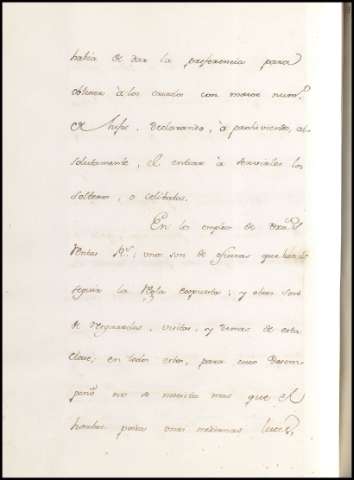 había de dar la preferencia para
obtener à los casados con maior num.º
de hijos, declarando, à
solutamente, el entrar à servirlos los
solteros, o celibatos.
En los empleos de
Rentas R.s, unos son de oficinas que
seguir la Regla expuesta; y otros son
de resguardos, visitas, y demas de esta
clase; en todos estos, para cuio desem
peño no se necesita mas que el
hombre posea unas medianas luces,